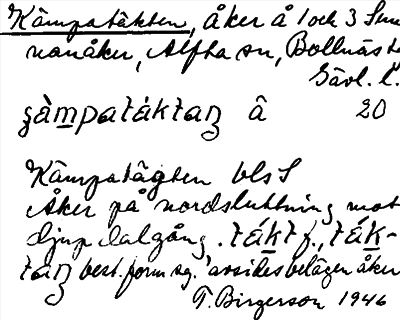 Kämpatäkten, åker å 1 och 3 Sunn
nanåker, Alfta sn, Bollnäs t
Gävl. l.
ʂàmpatáktaɲ â 20
Kämpatägten bls S
Åker på nordsluttning mot
djup dalgång. táktf., ták-
taɲ best. form sg. 'avsides belägen åker
T. Birgerson 1946